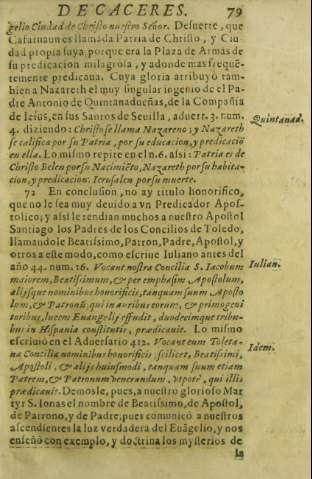 DE CACERES. 79
gelio Ciudad de Christo nuestro Señor. Desuerte, que
Cafarnaun es llamada Patria de Christo, y Ciu
dad propia suya, porque era la Plaza de Armas de
su predicacion milagrosa, y adonde mas frequẽ-
temente predicaua. Cuya gloria atribuyò tam-
bien a Nazareth el muy singular ingenio de el Pa-
dre Antonio de Quintanadueñas, de la Compañia
de Iesus, en sus Santos de Seuilla, aduert. 3. num.
4. diziendo: Christo se llama Nazareno; y Nazareth
Quintanad.
se califica por su Patria, por su educacion, y predicaciõ
en ella. Lo mismo repite en el n. 6. assi: Patria es de
Christo Belen por su Nacimiẽto, Nazareth por su habita-
cion, y predicacion: Ierusalen por su muerte.
72 En conclusion, no ay titulo honorifico,
que no le sea muy deuido a vn Predicador Apos-
tolico; y assi le rendian muchos a nuestro Apostol
Santiago los Padres de los Concilios de Toledo,
llamandole Beatissimo, Patron, Padre, Apostol, y
otros a este modo, como escriue Iuliano antes del
año 44. num. 16. Vocant nostra Concilia S. Iacobum
Iulian.
maiorem, Beatissimum, & per emphasim Apostolum,
alijsque nominibus honorificis, tanquam suum Aposto
lum, & Patronũ, qui in auribus eorum, & primogeni
toribus, lucem Euangelij effudit, duodecimque tribu-
bus in Hispania constitutis, prædicauit. Lo mismo
escriuiò en el Aduersario 412. Vocant eum Toleta-
Idem.
na Concilia nominibus honorificis, scilicet, Beatissimi,
Apostoli, & alijs huiusmodi, tanquam suum etiam
Patrem, & Patronum venerandum, vtpotè, qui illis
prædicauit. Demosle, pues, a nuestro glorioso Mar
tyr S. Ionas el nombre de Beatissimo, de Apostol,
de Patrono, y de Padre; pues comunicò a nuestros
ascendientes la luz verdadera del Euãgelio, y nos
enseñò con exemplo, y doctrina los mysterios de
la